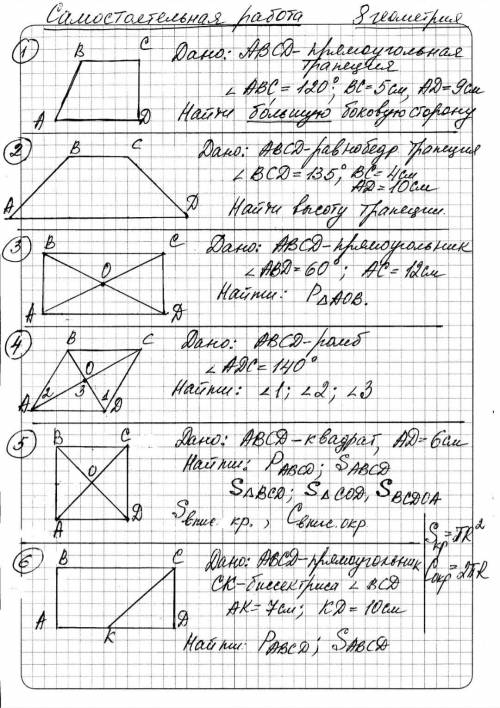 Самостоятельная работа 8 геометрия
1
B C
A D
Дано: ABCD-прямоугольная
трапеция
∠ABC = 120°; BC=5см, AD=9см
Найти бóльшую боковую сторону
2
B C
A D
Дано: ABCD-равнобедр трапеция
∠BCD=135°; BC=4см
AD=10см
Найти высоту трапеции.
3
B C
O
A D
Дано: ABCD-прямоугольник
∠ABD=60°; AC=12см
Найти: P△AOB.
4
B C
O
A 2 3 1 D
Дано: ABCD-ромб
∠ADC=140°
Найти: ∠1; ∠2; ∠3
5
B C
O
A D
Дано: ABCD-квадрат, AD=6см
Найти: PABCD; SABCD
S△BCD; S△COD, SBCDOA
Sвпис. кр., Cвпис. окр.
Sкр=πR²
Cокр=2πR
6
B C
A K D
Дано: ABCD-прямоугольник
CK-биссектриса ∠BCD
AK=7см; KD=10см
Найти: PABCD; SABCD